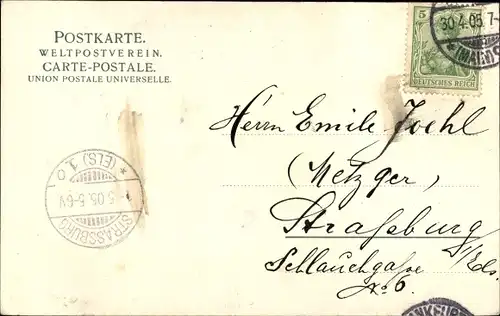 POSTKARTE.
WELTPOSTVEREIN.
CARTE-POSTALE.
UNION POSTALE UNIVERSELLE.
5
DEUTSCHES REICH
30.4.05.7-
(MAIN)
Herrn Emile Joehl
(Metzger)
Straßburg
i/Els.
Schlauchgaße
No 6.
STRASSBURG
5.05.5-6V
* (ELS.) 1.